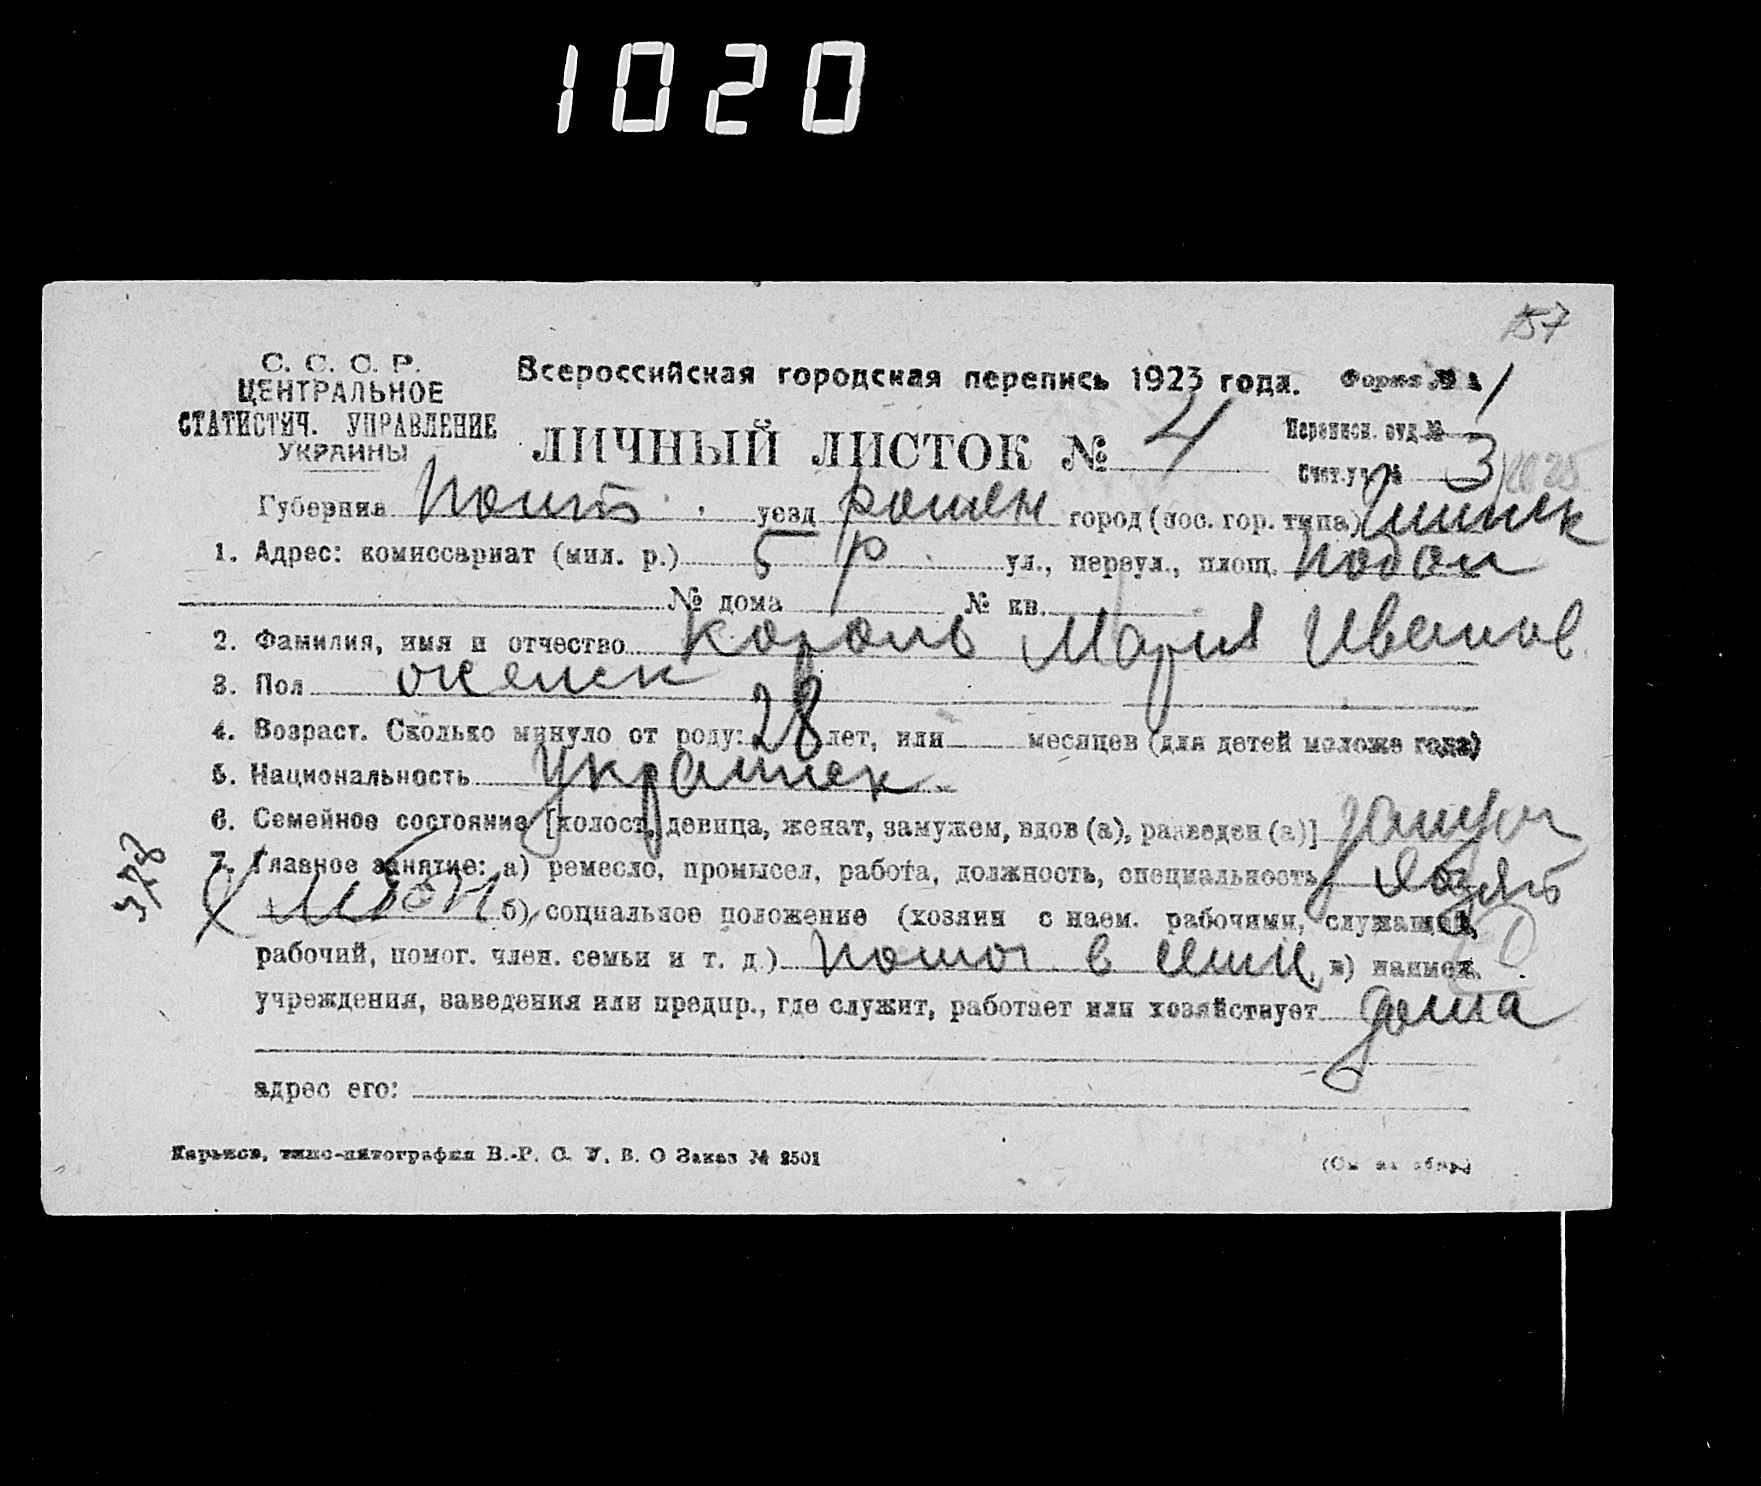 1020
157
С. С. С. Р.
ЦЕНТРАЛЬНОЕ
СТАТИСТИЧ. УПРАВЛЕНИЕ
УКРАИНЫ
Всероссийская городская перепись 1923 года. Форма № 1
ЛИЧНЫЙ ЛИСТОК № 4
Переписн. отд. № 1
Счет. уч. № 3
Губерния Полт. уезд Ромен город (пос. гор. типа)
1. Адрес: комиссариат (мил. р.) 5 р. ул., переул., площ. Подол
№ дома № кв.
2. Фамилия, имя и отчество Король Мария Иванов
3. Пол женск
4. Возраст. Сколько минуло от роду: 28 лет, или месяцев (для детей моложе года)
5. Национальность Украинск.
6. Семейное состояние [холост, девица, женат, замужем, вдов (а), разведен (а)] замуж
7. Главное занятие: а) ремесло, промысел, работа, должность, специальность
б) социальное положение (хозяин с наем. рабочими, служащий,
рабочий, помог. член. семьи и т. д.) помог в семи в) наимен.
учреждения, заведения или предпр., где служит, работает или хозяйствует дома
адрес его:
Харьков, типо-литография В.-Р. С. У. В. О Заказ № 2501
(См на обор)